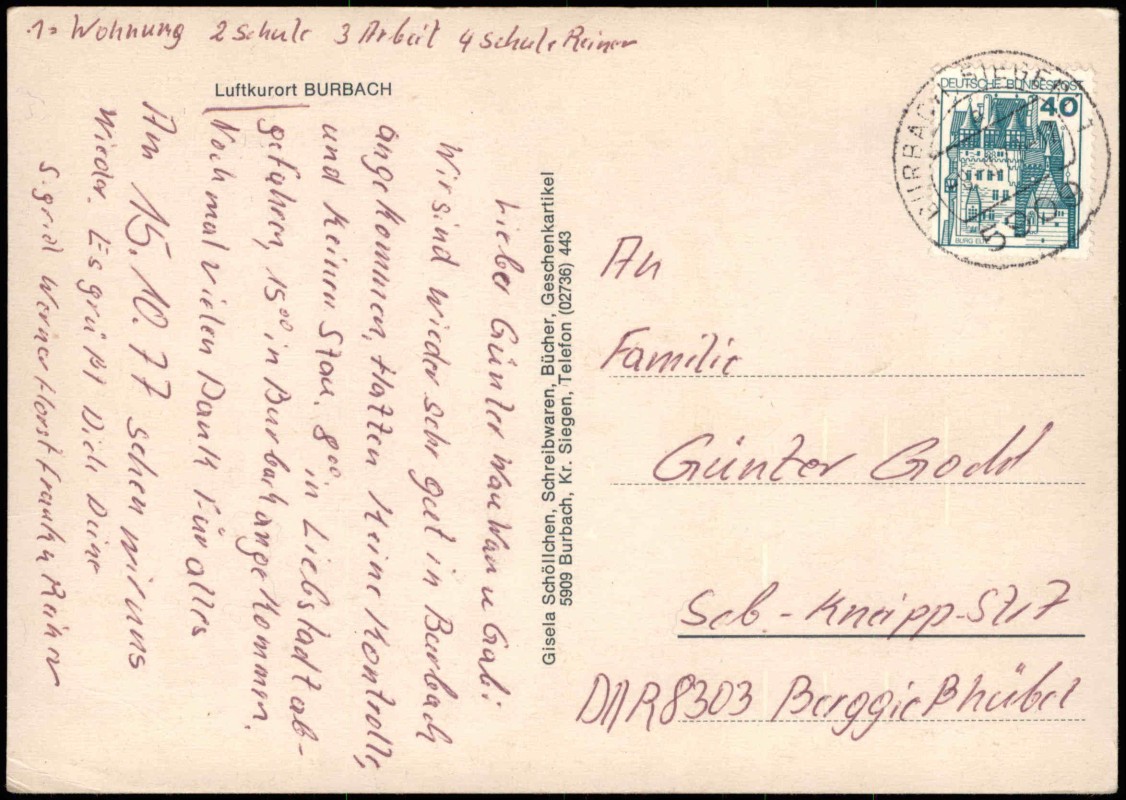 1= Wohnung 2 Schule 3 Arbeit 4 Schule Reiner
Luftkurort BURBACH
Lieber Günter u Gabi
Wir sind wieder sehr gut in Burbach
angekommen, Hatten keine Kontrolle,
und keinen Stau. 8⁰⁰ in Liebstadt ab-
gefahren, 15⁰⁰ in Burbach angekommen.
Nochmal vielen Dank für alles
Am 15.10.77 sehen wir uns
wieder. Es grüßt Dich Deine
Sigrid Werner Horst Frauke Reiner
Gisela Schöllchen, Schreibwaren, Bücher, Geschenkartikel
5909 Burbach, Kr. Siegen, Telefon (02736) 443
DEUTSCHE BUNDESPOST
40
BURG ELTZ
BURBACH, SIEGEN 1
5909
An
Familie
Günter Godd
Seb.-Kneipp-Str 7
DDR 8303 Berggießhübel